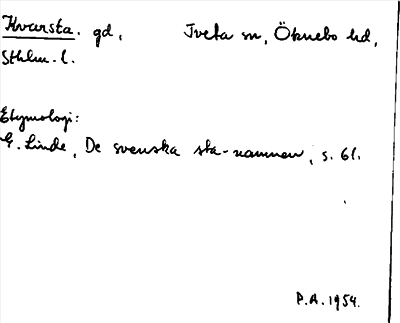 Kvarsta. gd, Tveta sn, Öknebo hd,
Sthlm. l.
Etymologi:
G. Linde, De svenska sta-namnen, s. 61.
P.A. 1954.